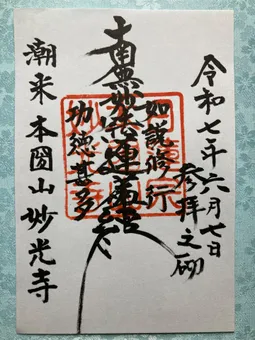 令和七年六月七日
参拝之砌
如説修行
南無妙法蓮華経
功徳甚多
潮来本圀山妙光寺